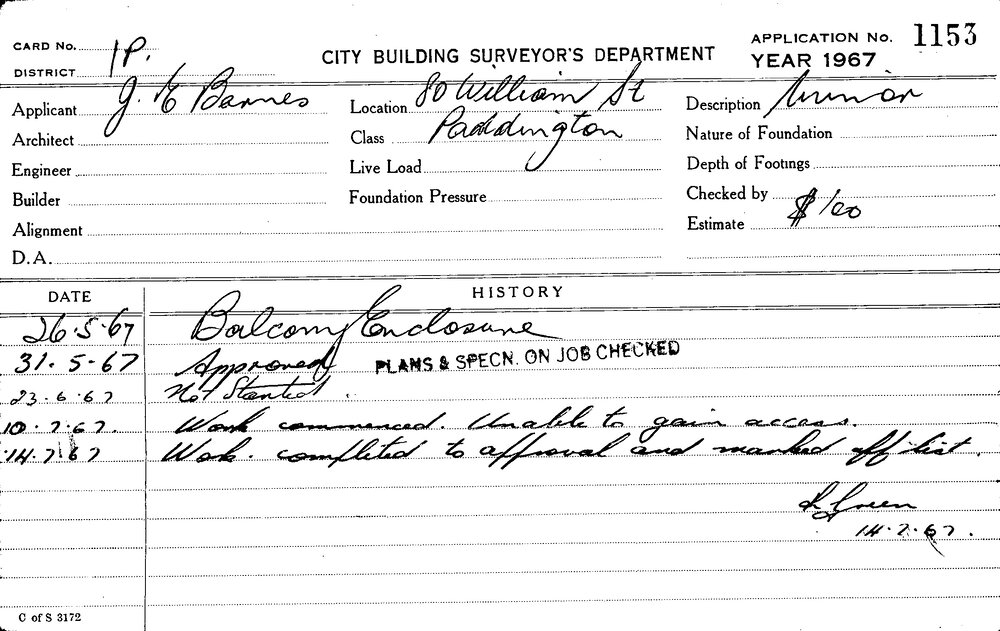 CARD No. 1P.
CITY BUILDING SURVEYOR'S DEPARTMENT
APPLICATION No. 1153
DISTRICT
YEAR 1967
Applicant J. E Barnes
Location 80 William St
Description Minor
Architect
Class Paddington
Nature of Foundation
Engineer
Live Load
Depth of Footings
Builder
Foundation Pressure
Checked by
Alignment
Estimate $100
D.A.
DATE
HISTORY
26.5.67 Balcony Enclosure
31.5.67 Approved PLANS & SPECN. ON JOB CHECKED
23.6.67 Not Started.
10.7.67. Work commenced. Unable to gain access.
14.7.67 Work completed to approval and marked off list.
Green
14.7.67.
C of S 3172